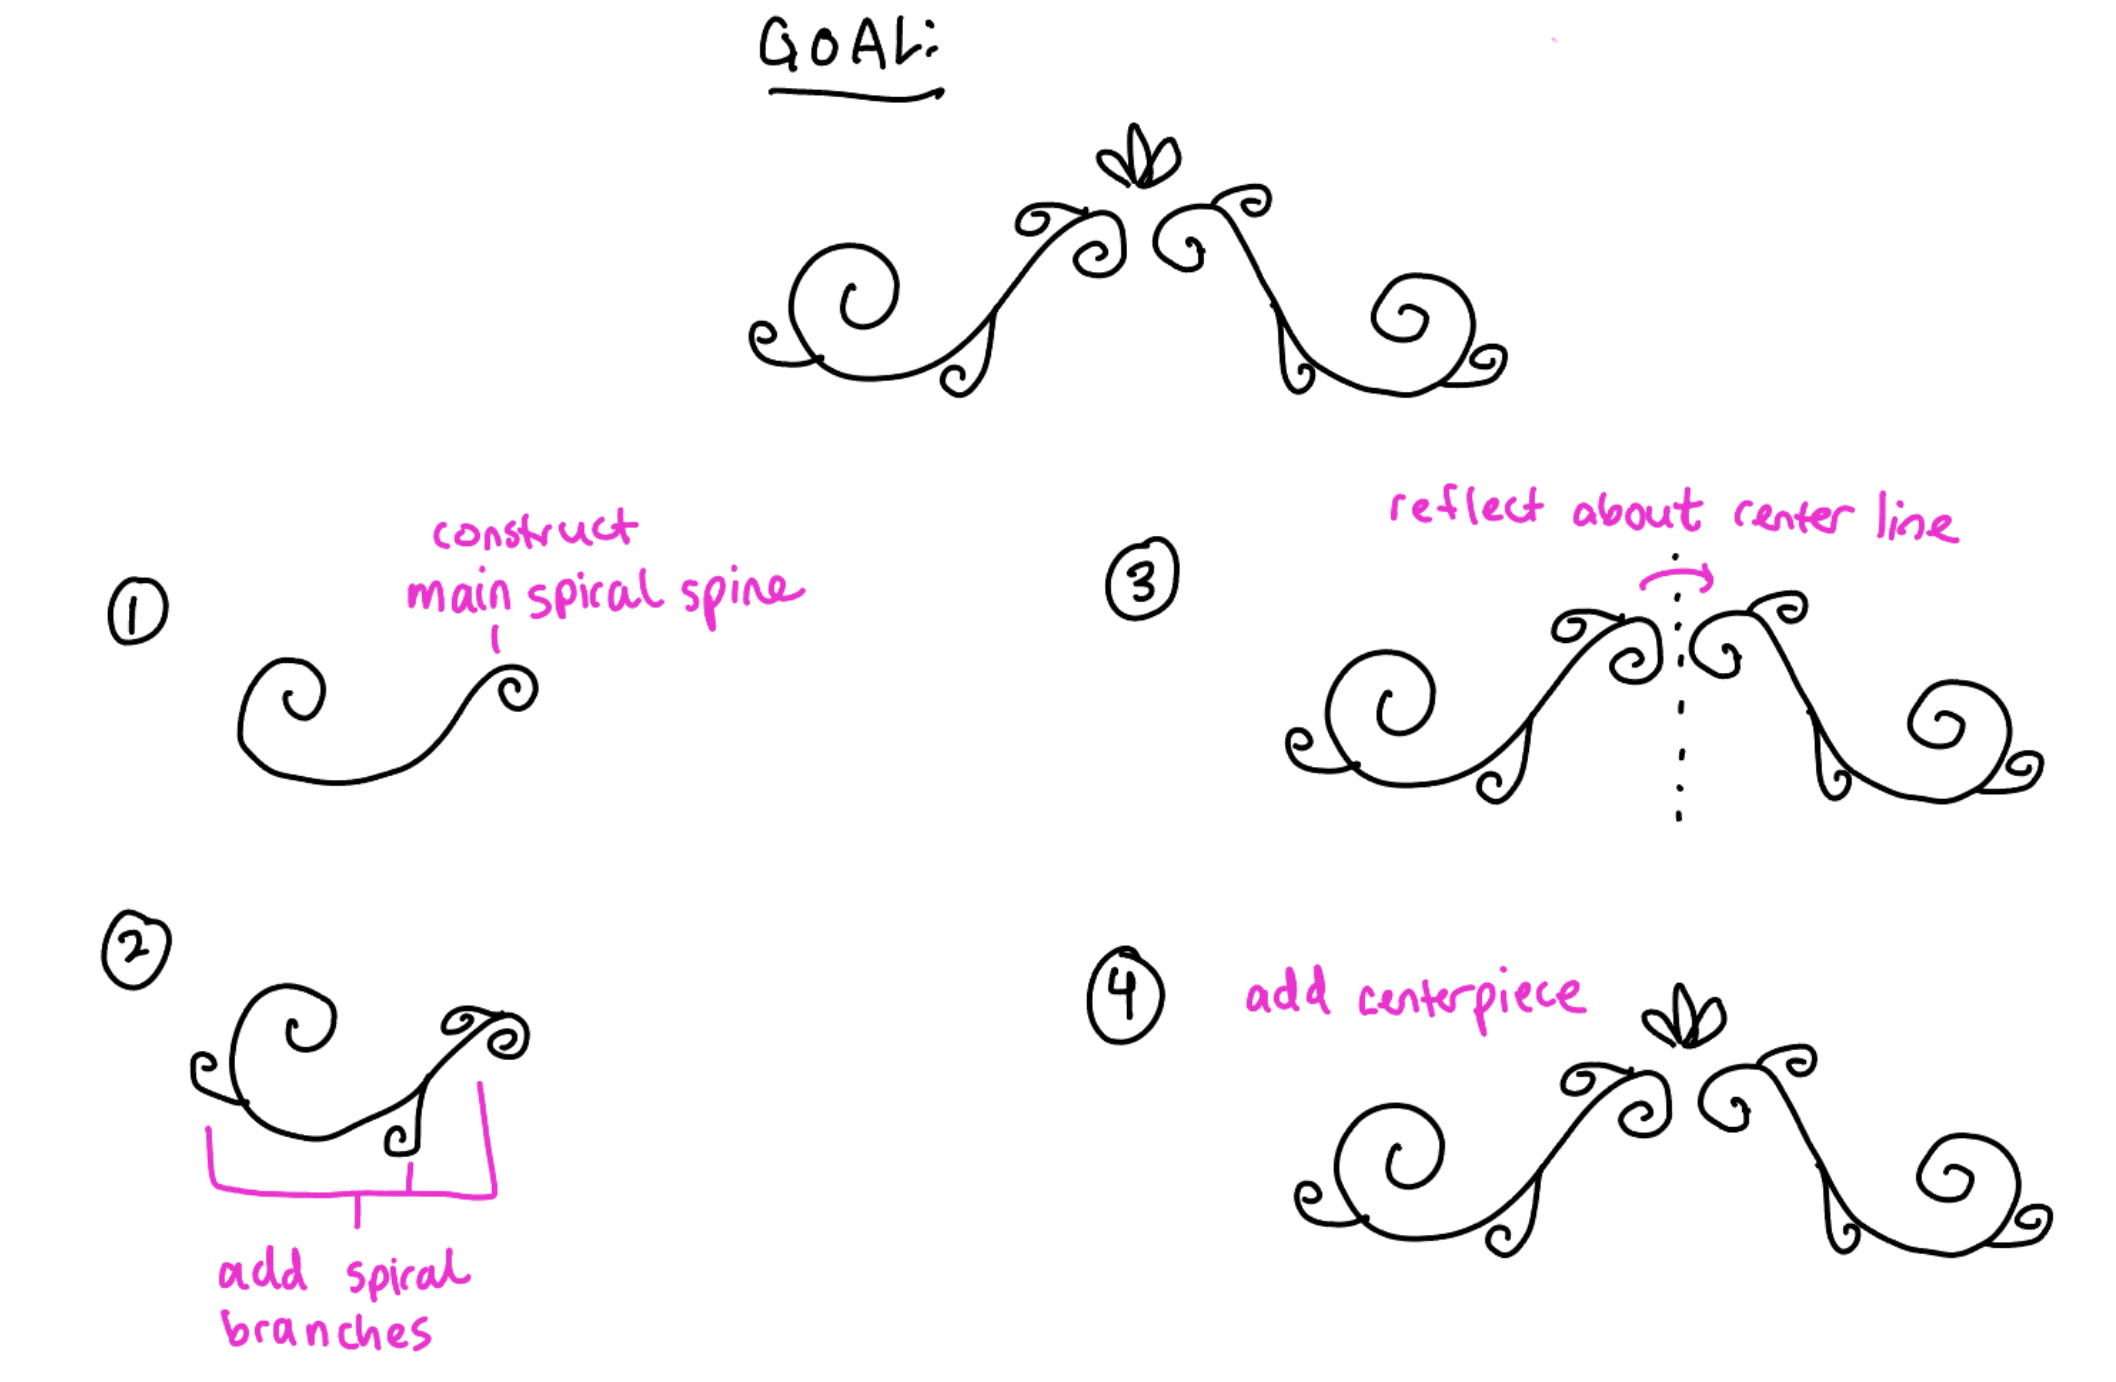 GOAL:
1
construct
main spiral spine
2
add spiral
branches
3
reflect about center line
4
add centerpiece